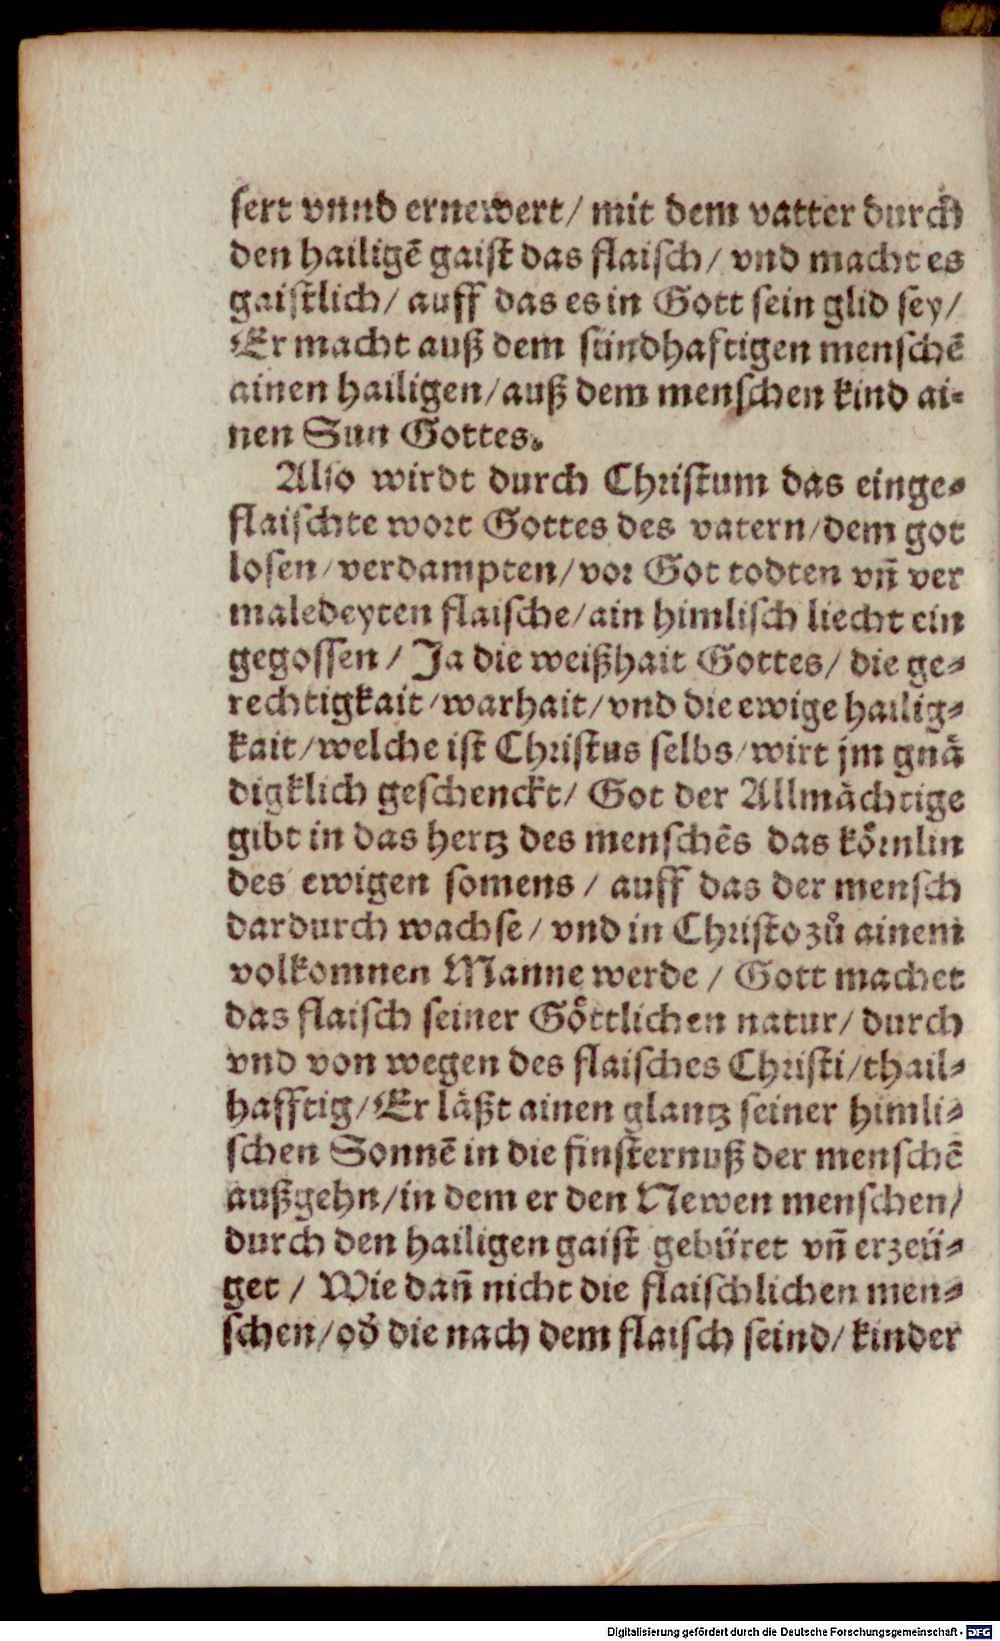 sert vnnd ernewert/ mit dem vatter durch
den hailigē gaist das flaisch/ vnd macht es
gaistlich/ auff das es in Gott sein glid sey/
Er macht auß dem sündhaftigen menschē
ainen hailigen/auß dem menschen kind ai-
nen Sun Gottes.
Also wirdt durch Christum das einge-
flaischte wort Gottes des vatern/dem got
losen/verdampten/vor Got todten vñ ver
maledeyten flaische/ain himlisch liecht ein
gegossen/ Ja die weißhait Gottes/ die ge-
rechtigkait/warhait/vnd die ewige hailig-
kait/welche ist Christus selbs/wirt jm gnå
digklich geschenckt/ Got der Allmåchtige
gibt in das hertz des menschēs das kôrnlin
des ewigen somens/ auff das der mensch
dardurch wachse/ vnd in Christo zů ainem
volkomnen Manne werde/ Gott machet
das flaisch seiner Gôttlichen natur/ durch
vnd von wegen des flaisches Christi/thail-
hafftig/Er låßt ainen glantz seiner himli-
schen Sonnē in die finsternuß der menschē
außgehn/in dem er den Newen menschen/
durch den hailigen gaist gebüret vñ erzeü-
get/ Wie dañ nicht die flaischlichen men-
schen/oď die nach dem flaisch seind/kinder
Digitalisierung gefördert durch die Deutsche Forschungsgemeinschaft - DFG